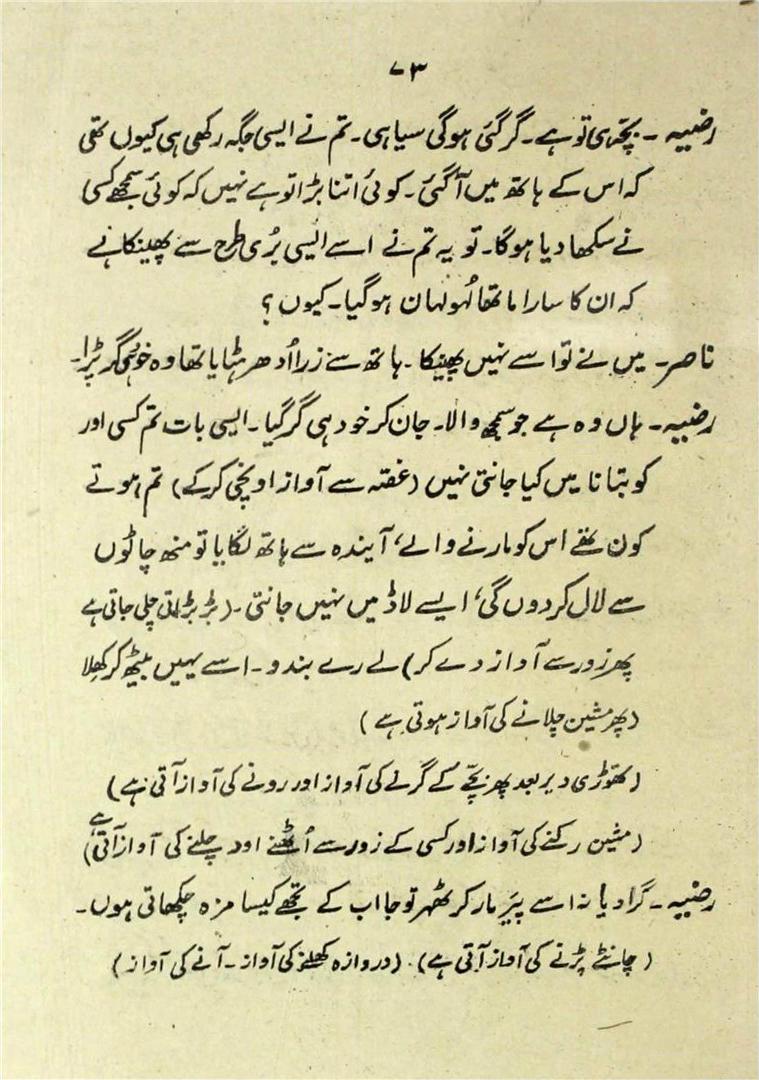 ۷۳
رضیہ ۔ بچّہ ہی تو ہے۔ گر گئی ہوگی سیاہی۔ تم نے ایسی جگہ رکھی ہی کیوں تھی
کہ اس کے ہاتھ میں آگئی۔ کوئی اتنا بڑا تو ہے نہیں کہ کوئی سمجھے کسی
نے سکھا دیا ہوگا۔ تو یہ تم نے اسے ایسی بُری طرح سے پھینکانے
کہ ان کا سارا ماتھا لُہولہان ہوگیا۔ کیوں ؟
ناصر۔ میں نے تو اسے نہیں پھینکا ۔ ہاتھ سے زرا اُدھر ہٹایا تھا وہ خود ہی گر پڑا۔
رضیہ۔ ہاں وہ ہے جو سمجھ والا۔ جان کر خود ہی گر گیا ۔ ایسی بات تم کسی اور
کو بتانا میں کیا جانتی نہیں (غصّہ سے آواز اونچی کرکے) تم ہوتے
کون تھے اس کو مارنے والے، آیندہ سے ہاتھ لگایا تو منھ چانٹوں
سے لال کر دوں گی، ایسے لاڈ میں نہیں جانتی ۔ (بڑبڑاتی چلی جاتی ہے
پھر زور سے آواز دے کر) لے رے بندو ۔ اسے یہیں بیٹھ کر کھلا
(پھر مشین چلانے کی آواز ہوتی ہے )
(تھوڑی دیر بعد پھر بچّے کے گرنے کی آواز اور رونے کی آواز آتی ہے)
(مشین رکنے کی آواز اور کسی کے زور سے اُٹھنے اور چلنے کی آواز آتی ہے)
رضیہ۔ گرا دیا نہ اسے پَیر مار کر ٹھہر تو جا اب کے تجھے کیسا مزہ چکھاتی ہوں۔
(چانٹے پڑنے کی آواز آتی ہے) ۔ (دروازہ کھلنے کی آواز ۔ آنے کی آواز )